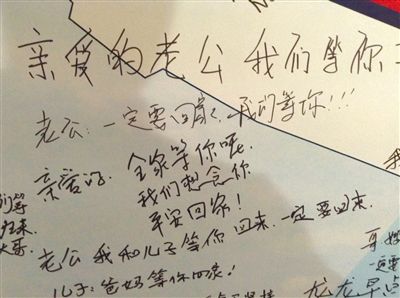 亲爱的老公 我们等你
老公：一定要回家，我们等你!!!
亲爱的：全家等你呢.
我们想念你
平安回家！
老公 我和儿子等你回来.一定要回来.
儿子：爸妈等你回家！
们等
归来
大哥.
一定要
龙龙早点